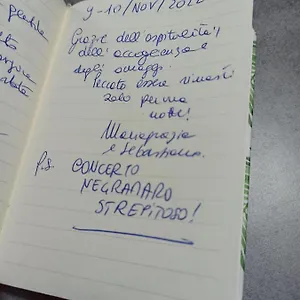 gentile
9-10/NOV/2022
Grazie dell'ospitalità,
dell'accoglienza e
degli omaggi.
Peccato essere rimasti
solo per una
notte!
Mariagrazia
e Sebastiano.
P.S. CONCERTO
NEGRAMARO
STREPITOSO!